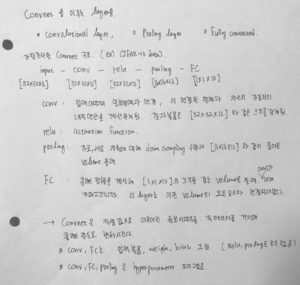 Convnet 을 이루는 layer들.
• Convolutional layer, • Pooling layer • Fully connected.
Convnet 구조. (ex) CIFAR-10 data)
input - conv - relu - pooling - FC
[32x32x3] [32x32x12] [32x32x12] [16x16x12] [1x1x10]
conv : 입력 이미지의 일부 영역과 연결, 이 연결된 영역과 자신의 가중치의
내적 연산을 계산하게 됨. 결과 볼륨은 [32x32x12] 와 같은 크기를 갖게 됨.
relu : activation function.
pooling : 가로, 세로 차원에 대해 down sampling 수행해 [16x16x12] 와 같이 줄어든
volume 출력
FC : 클래스 점수를 계산해 [1x1x10] 의 크기를 갖는 volume을 출력
이 layer는 이전 volume의 모든 요소와 연결되어있다.
→ Convnet은
클래스 점수로 변환시킨다.
* conv, FC는 weight, bias 포함. (Relu, pooling은
* conv, FC, pooling 은 hyperparameter